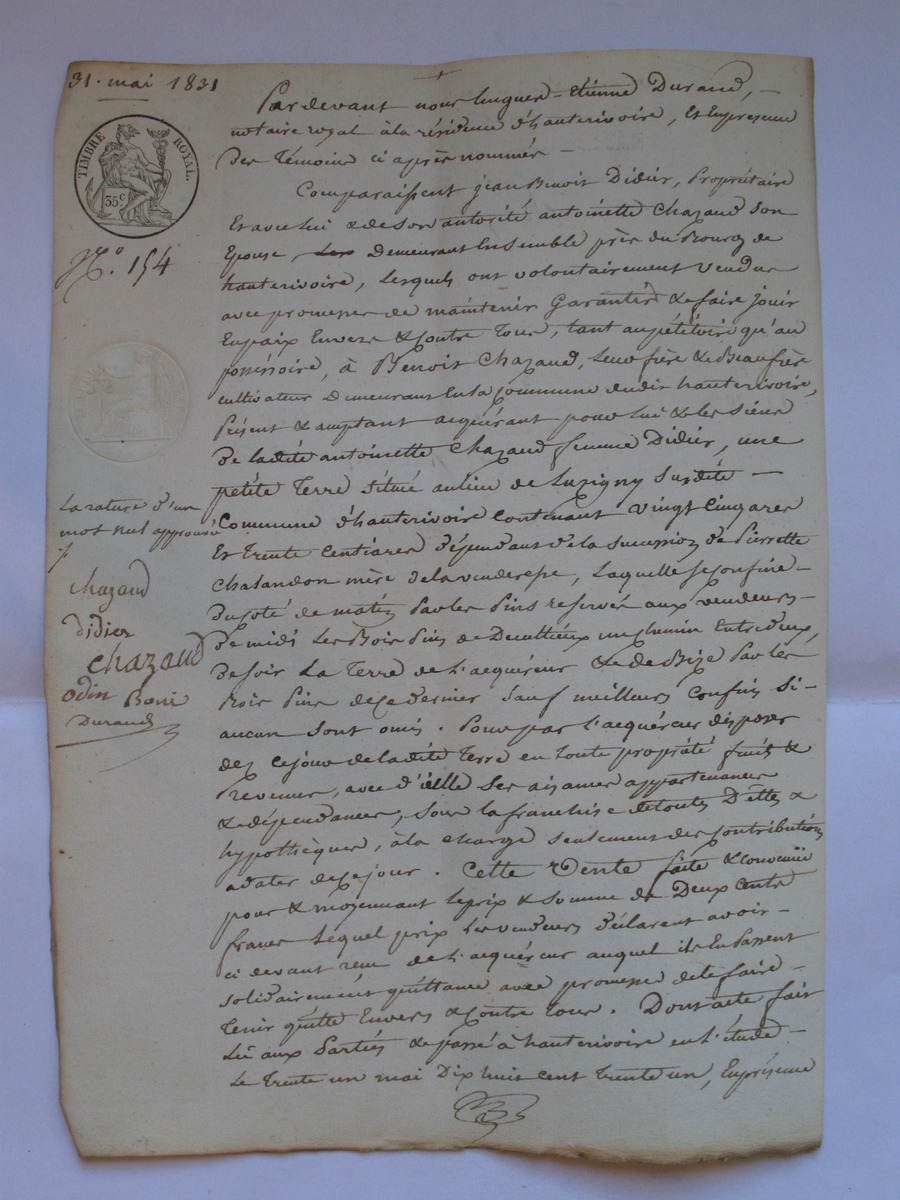 31. mai 1831
TIMBRE ROYAL.
35 c
N.º 154
La rature d'un
mot nul approuvé
chazaud
didier
chazaud
odin
Durand
Pardevant nous hugues Etienne Durand,
notaire royal à la résidence d'hauterivoire, Et En présence
des témoins ci après nommés —
Comparaissent jean Benoit Didier, Propriétaire
Et avec lui & de son autorité antoinette Chazaud son
Epouse Demeurant Ensemble près du Bourg de
hauterivoire, Lesquels ont volontairement vendu
avec promesse de maintenir Garantir & de faire jouir
En paix Envers & Contre tous, tant au pétitoire qu'au
possessoire, à Benoit Chazaud, leur frère & Beaufrère
cultivateur Demeurant En la Commune dudit hauterivoire,
Présent & acceptant acquérant pour lui & les siens
De ladite antoinette Chazaud femme Didier, une
petite Terre située au lieu de Luzigny susdite —
Commune d'hauterivoire Contenant vingt cinq ares
Et trente centiares dépendant de la succession de Pierrette
Chalandon mère de la venderesse, Laquelle se Confine —
Du Coté de matin Par les Pins reservés aux vendeurs —
De midi Les Bois Pins de un chemin Entredeux,
De soir La Terre de L'acquéreur & de Bize Par les
Bois Pins de ce dernier sauf meilleurs Confins si —
aucun sont omis. Pour par L'acquéreur disposer
dez ce jour de ladite Terre en toute propriété fruits &
revenus, avec d'icelle ses aisances appartenances
& dépendances, sous la franchise de toutes Dettes &
hypothèques, à la charge seulement des Contributions
a dater de ce jour. Cette Vente faite & convenue
pour & moyennant Le prix & somme de Deux Cents
francs Lequel prix Les vendeurs déclarent avoir —
ci devant reçu de L'acquéreur auquel ils En Passent
solidairement quittance avec promesse de le faire —
Tenir quitte Envers & Contre tous. Dont acte fait
Lû aux Parties & passé à hauterivoire en L'étude —
Le trente un mai Dix huit cent trente un, En présence